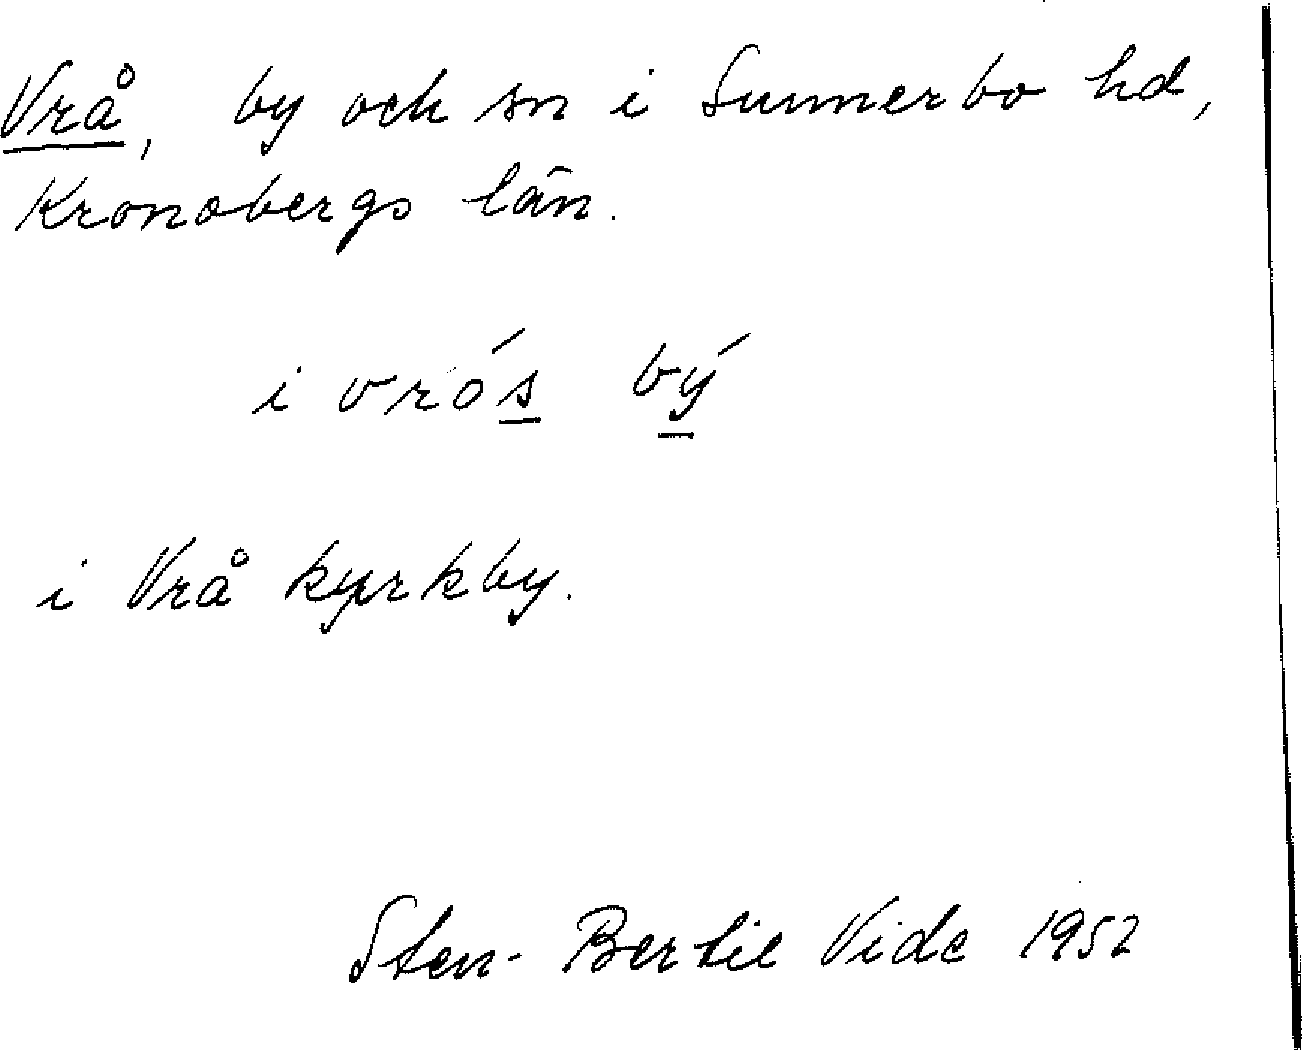 Vrå, by och sn i Sunnerbo hd,
Kronobergs län.
i vrós bý
i Vrå kyrkby.
Sten-Bertil Vide 1952